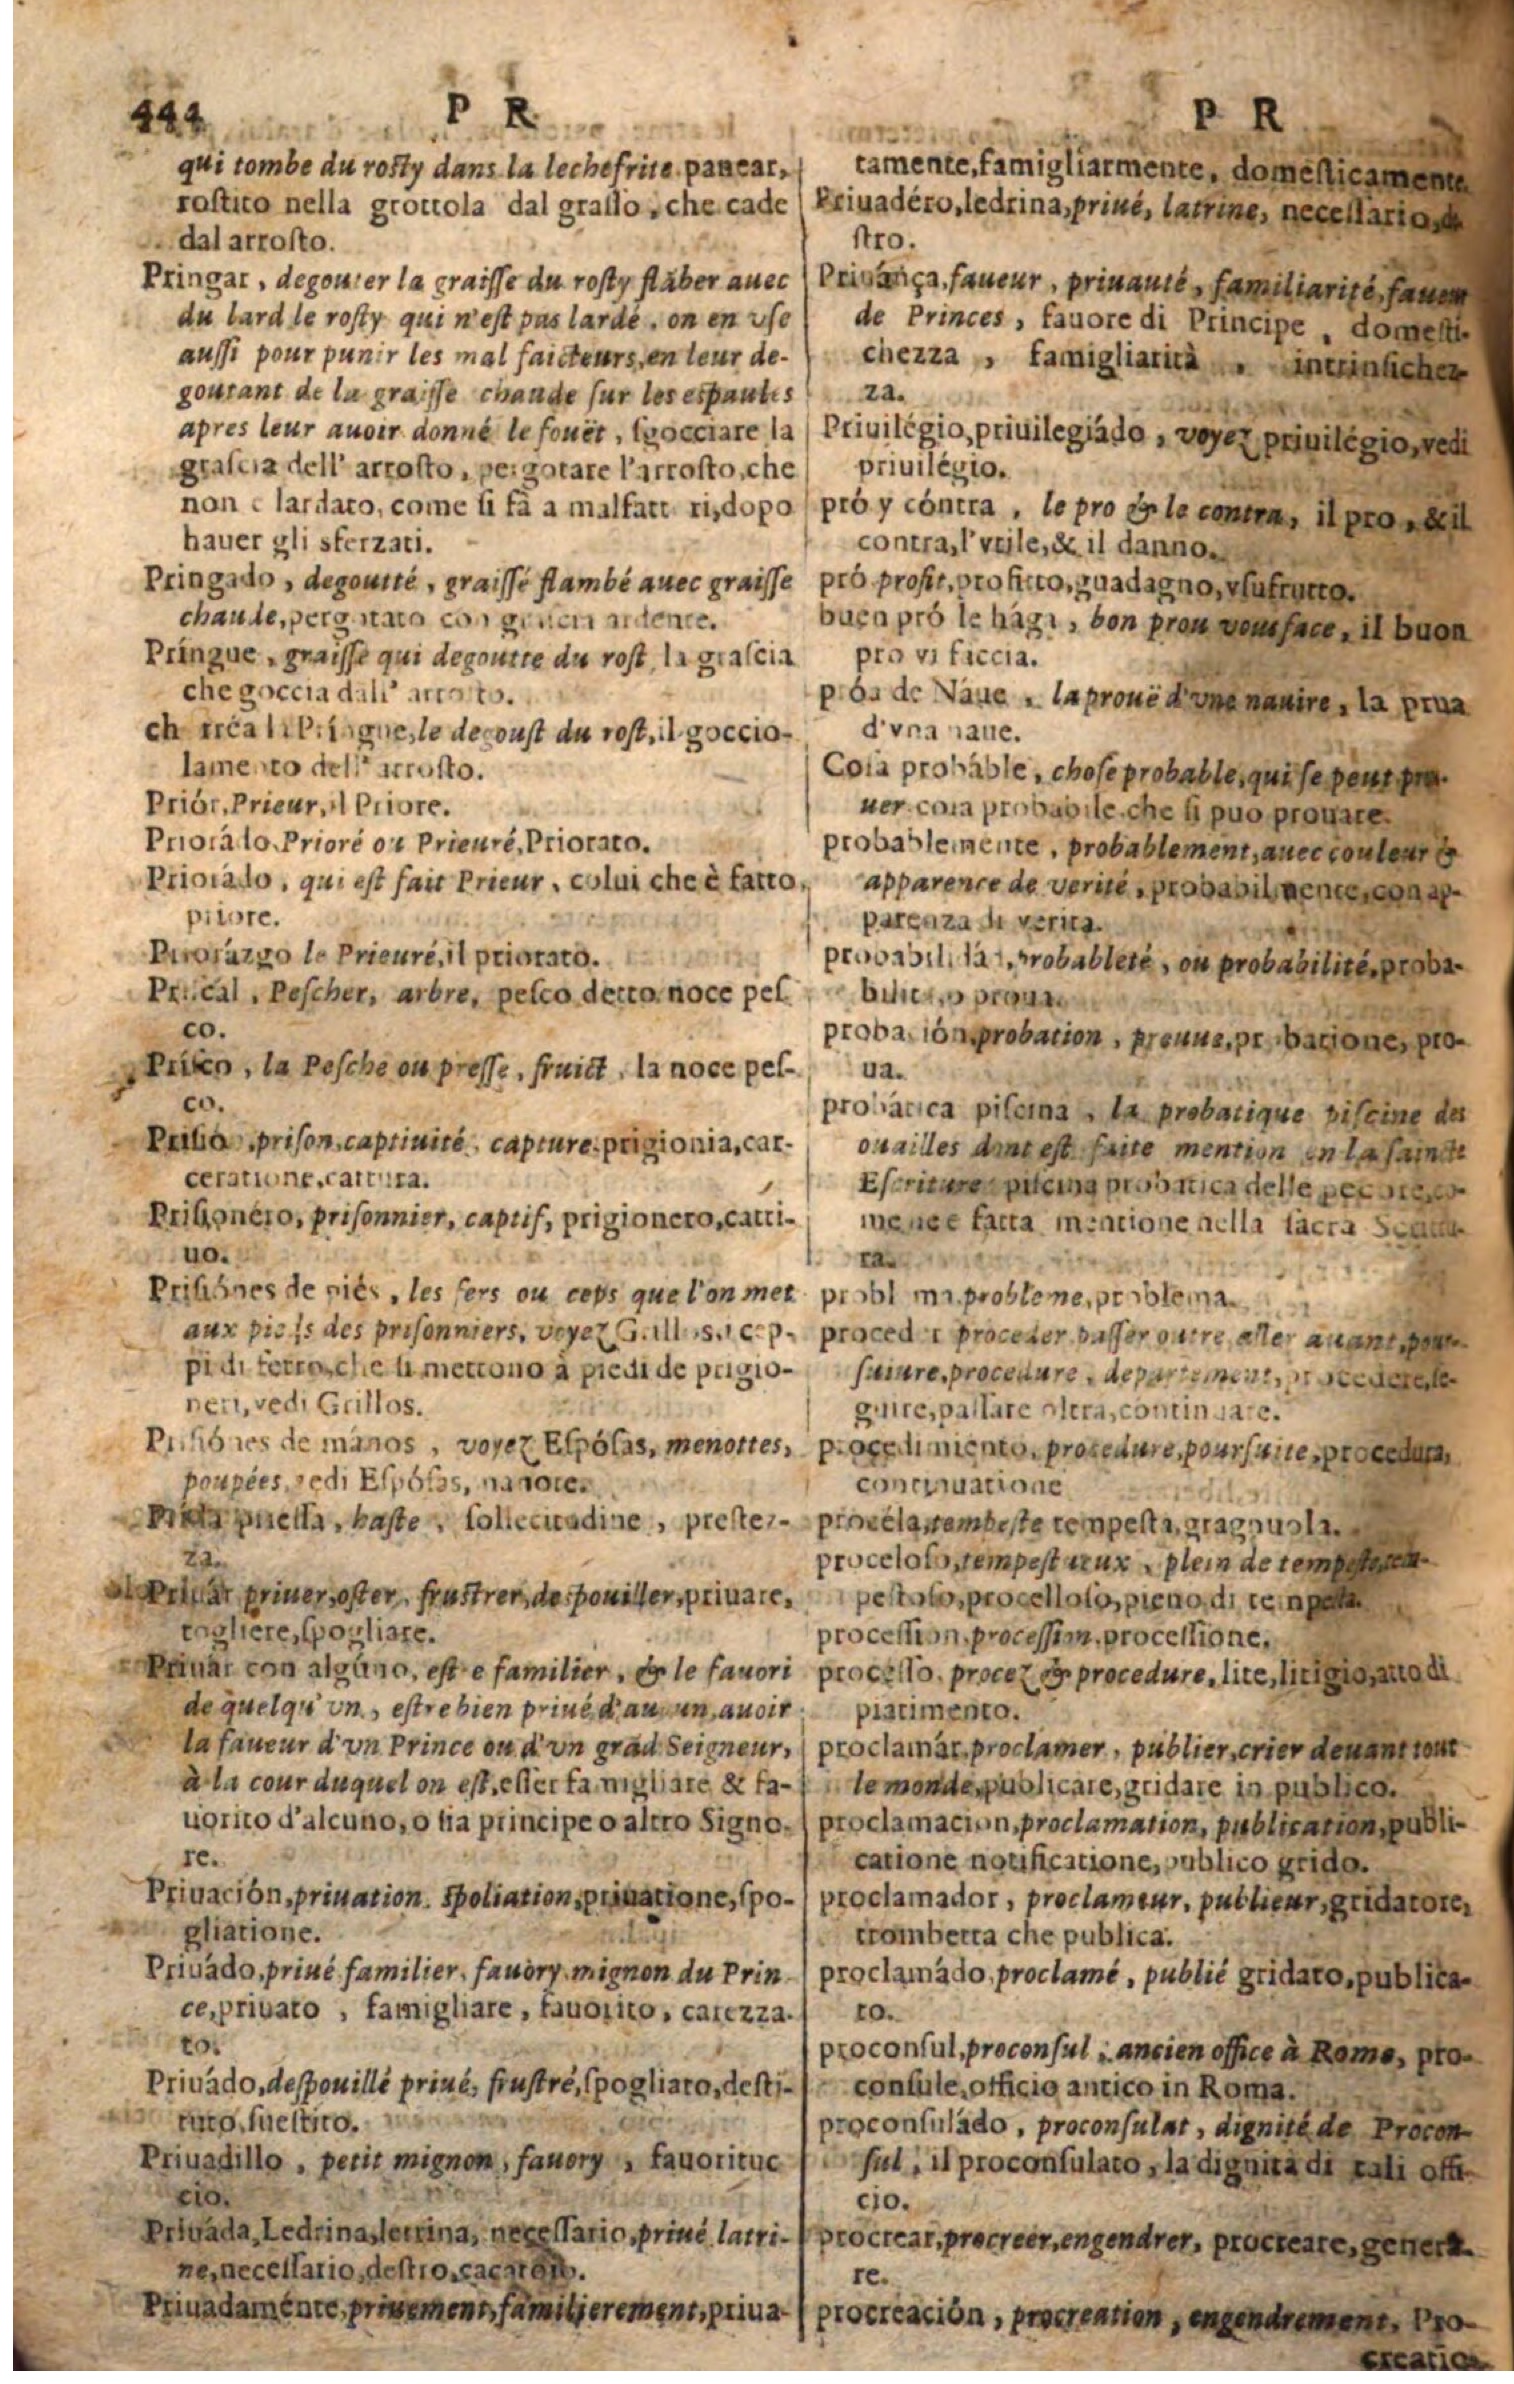 444 P R P R
qui tombe du rosty dans la lechefrite panear,
rostito nella grottola dal grasso, che cade
dal arrosto.
Pringar, degouter la graisse du rosty flãber auec
du lard le rosty qui n'est pas lardé, on en vse
aussi pour punir les mal faicteurs, en leur de-
goutant de la graisse chaude sur les espaules
apres leur auoir donné le fouët, sgocciare la
grascia dell' arrosto, pergotare l'arrosto, che
non e lardato, come si fà a malfatt ri, dopo
hauer gli sferzati.
Pringado, degoutté, graissé flambé auec graisse
chaude, pergotato con grascia ardente.
Pringue, graisse qui degoutte du rost, la grascia
che goccia dall' arrosto.
ch rréa la Pringue, le degoust du rost, il goccio-
lamento dell' arrosto.
Priór, Prieur, il Priore.
Priorádo, Prioré ou Prieuré, Priorato.
Priorádo, qui est fait Prieur, colui che è fatto
priore.
Priorázgo le Prieuré, il priorato.
Priscal, Pescher, arbre, pesco detto noce pes
co.
Prisco, la Pesche ou presse, fruict, la noce pes-
co.
Prisió, prison, captiuité, capture, prigionia, car-
ceratione, cattura.
Prisionéro, prisonnier, captif, prigionero, catti-
uo.
Prisiónes de piés, les fers ou ceps que l'on met
aux pieds des prisonniers, voyez Grillos, i cep-
pi di ferro, che si mettono à piedi de prigio-
neri, vedi Grillos.
Prisiónes de mános, voyez Espósas, menottes,
poupées, vedi Espósas, manote.
priessa, haste, sollecitudine, prestez-
za.
Priuár priuer, oster, frustrer, despouiller, priuare,
togliere, spogliare.
Priuár con algúno, estre familier, & le fauori
de quelqu'vn, estre bien priué d'aucun, auoir
la faueur d'vn Prince ou d'vn grãd Seigneur,
à la cour duquel on est, esser famigliare & fa-
uorito d'alcuno, o sia principe o altro Signo-
re.
Priuación, priuation, spoliation, priuatione, spo-
gliatione.
Priuádo, priué familier, fauory mignon du Prin
ce, priuato, famigliare, fauorito, carezza-
to.
Priuádo, despouillé priué, frustré, spogliato, desti-
tuto, suestito.
Priuadillo, petit mignon, fauory, fauorituc
cio.
Priuáda, Ledrina, letrina, necessario, priué latri-
ne, necessario, destro, cacatoio.
Priuadaménte, priuement, familierement, priua-
tamente, famigliarmente, domesticamente.
Priuadéro, ledrina, priué, latrine, necessario, de
stro.
Priuánça, faueur, priuauté, familiarité, faueur
de Princes, fauore di Principe, domesti-
chezza, famigliarità, intrinsichez-
za.
Priuilégio, priuilegiádo, voyez priuilégio, vedi
priuilégio.
pró y cóntra, le pro & le contra, il pro, & il
contra, l'vtile, & il danno.
pró profit, profitto, guadagno, vsufrutto.
buen pró le hága, bon prou vous face, il buon
pro vi faccia.
próa de Náue, la prouë d'vne nauire, la prua
d'vna naue.
Cosa probáble, chose probable, qui se peut prou-
uer cosa probabile che si puo prouare.
probablemente, probablement, auec couleur &
apparence de verité, probabilmente, con ap-
parenza di verita.
probabilidád, probableté, ou probabilité, proba-
bilità, o proua.
probación, probation, preuue, probatione, pro-
ua.
probática piscina, la probatique piscine des
ouailles dont est faite mention en la saincte
Escriture, piscina probatica delle pecore, co-
me ne e fatta mentione nella sacra Scrittu-
ra.
probl ma, probleme, problema.
proceder proceder passer outre, aller auant, pour-
suiure, procedure, departement, procedere, se-
guire, passare oltra, continuare.
procedimiento, procedure, poursuite, procedura,
continuatione
procéla, tempeste tempesta, gragnuola.
proceloso, tempestueux, plein de tempeste, tem-
pestoso, procelloso, pieno di tempesta.
procession, procession, processione.
processo, procez & procedure, lite, litigio, atto di
piatimento.
proclamár, proclamer, publier, crier deuant tout
le monde, publicare, gridare in publico.
proclamacion, proclamation, publication, publi-
catione notificatione, publico grido.
proclamador, proclameur, publieur, gridatore,
trombetta che publica.
proclamádo, proclamé, publié gridato, publica-
to.
proconsul, proconsul, ancien office à Rome, pro-
consule, officio antico in Roma.
proconsuládo, proconsulat, dignité de Procon-
sul, il proconsulato, la dignità di tali offi-
cio.
procrear, procreer, engendrer, procreare, genera-
re.
procreación, procreation, engendrement, Pro-
creatio-